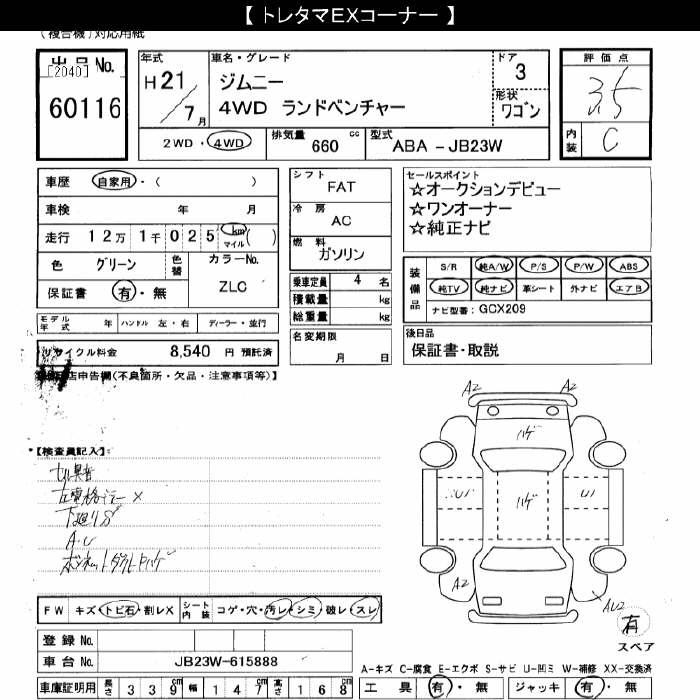 【 トレタマEXコーナー 】
(複合機)対応用紙
出品 No.
[2040]
60116
年式
H 21 / 7 月
車名・グレード
ジムニー
4WD ランドベンチャー
ドア
3
形状
ワゴン
評価点
3.5
内装
C
2WD・4WD
排気量 660 cc
型式 ABA - JB23W
車歴 自家用・( )
車検 年 月
走行 12万 1千 0 2 5 km マイル ( )
色 グリーン 色替 カラーNo. ZLC
保証書 有・無
モデル年式 年 ハンドル 左・右 ディーラー・並行
リサイクル料金 8,540 円 預託済
シフト FAT
冷房 AC
燃料 ガソリン
乗車定員 4 名
積載量 kg
総重量 kg
名変期限
月 日
セールスポイント
☆オークションデビュー
☆ワンオーナー
☆純正ナビ
装備品
S/R 純A/W P/S P/W ABS
純TV 純ナビ 革シート 外ナビ エアB
ナビ型番: GCX209
後日品
保証書・取説
店申告欄(不良箇所・欠品・注意事項等)】
【検査員記入】:
A・U
A2 A2
ハゲ
U ハゲ U
A2
AU2
有
スペア
FW キズ・トビ石・割レX シート内装 コゲ・穴・汚レ・シミ・破レ・スレ
登録 No.
車台 No. JB23W-615888
車庫証明用 長さ 3 3 9 cm 幅 1 4 7 cm 高さ 1 6 8 cm
A-キズ C-腐食 E-エクボ S-サビ U-凹ミ W-補修 XX-交換済
工具 有・無 ジャッキ 有・無